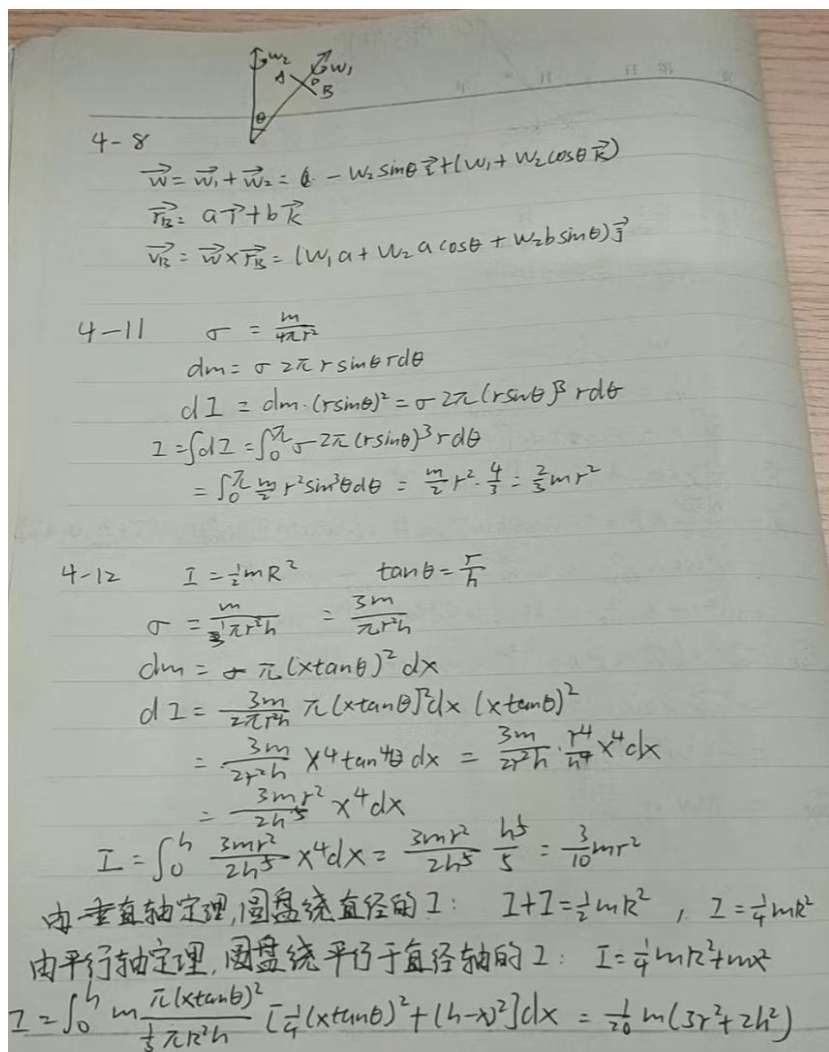 w₂ A w₁ B θ
4-8
w⃗ = w⃗₁ + w⃗₂ = - w₂ sinθ i⃗ + (w₁ + w₂ cosθ k⃗)
r⃗_B = a i⃗ + b k⃗
v⃗_B = w⃗ × r⃗_B = (w₁ a + w₂ a cosθ + w₂ b sinθ) j⃗
4-11 σ = m/4πr²
dm = σ 2π r sinθ r dθ
dI = dm·(r sinθ)² = σ 2π (r sinθ)³ r dθ
I = ∫dI = ∫₀^π σ 2π (r sinθ)³ r dθ
= ∫₀^π m/2 r² sin³θ dθ = m/2 r² · 4/3 = 2/3 mr²
4-12 I = ½mR² tanθ = r/h
σ = m/(⅓πr²h) = 3m/πr²h
dm = σ π (x tanθ)² dx
dI = 3m/2πr²h π (x tanθ)² dx (x tanθ)²
= 3m/2r²h x⁴ tan⁴θ dx = 3m/2r²h · r⁴/h⁴ x⁴ dx
= 3mr²/2h⁵ x⁴ dx
I = ∫₀^h 3mr²/2h⁵ x⁴ dx = 3mr²/2h⁵ h⁵/5 = 3/10 mr²
由垂直轴定理,圆盘绕直径的I: I+I=½mR² , I=¼mR²
由平行轴定理,圆盘绕平行于直径轴的I: I=¼mR²+mx²
I = ∫₀^h m π(x tanθ)²/(⅓πR²h) [¼(x tanθ)² + (h-x)²] dx = 1/20 m(3r²+2h²)